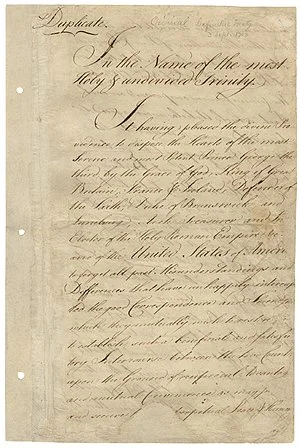 Duplicate.
In the Name of the most
Holy & undivided Trinity.
It having pleased the divine Pro
vidence to dispose the Hearts of the most
Serene and most Potent Prince George the
third by the Grace of God, King of Great
Britain, France & Ireland, Defender of
the Faith, Duke of Brunswick and
Luneburg, Arch Treasurer and
Elector of the Holy Roman Empire &c
and of the United States of America
to forget all past Misunderstandings and
Differences that have unhappily interrup
ted the good Correspondence and Friendship
which they mutually wish to restore;
to establish such a beneficial and satisfac
tory Intercourse between the two Countries
upon the Ground of reciprocal Advantages
and mutual Convenience as may
and secure perpetual Peace &